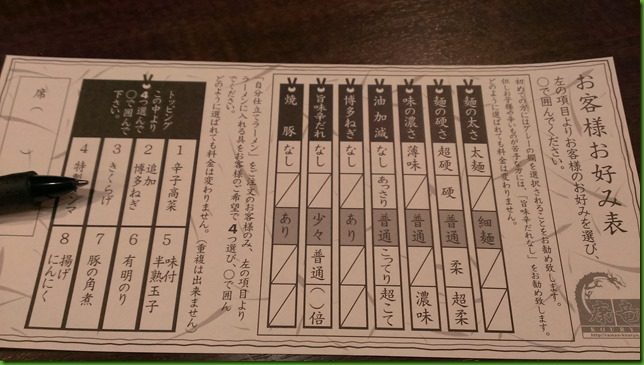 お客様お好み表
左の項目よりお客様のお好みを選び、
○で囲んでください。
初めての方にはグレーの欄を選択されることをお勧め致します。
但しお子様や辛いものが苦手な方には、「旨味辛だれなし」をお勧め致します。
麺の太さ 太麺 細麺
麺の硬さ 超硬 硬 普通 柔 超柔
味の濃さ 薄味 普通 濃味
油加減 なし あっさり 普通 こってり 超こて
博多ねぎ なし あり
旨味辛だれ なし 少々 普通 ( )倍
焼豚 なし あり
「自分仕立てラーメン」をご注文のお客様のみ、左の項目より
ラーメンに入れる具をお客様のご希望で4つ選び、○で囲ん
でください。
どのように選ばれても料金は変わりません。(重複は出来ません)
トッピング
この中より
4つ選んで
○で囲んで
下さい。
1 辛子高菜
2 追加博多ねぎ
3 きくらげ
4 特製
5 味付半熟玉子
6 有明のり
7 豚の角煮
8 揚げにんにく
席 (